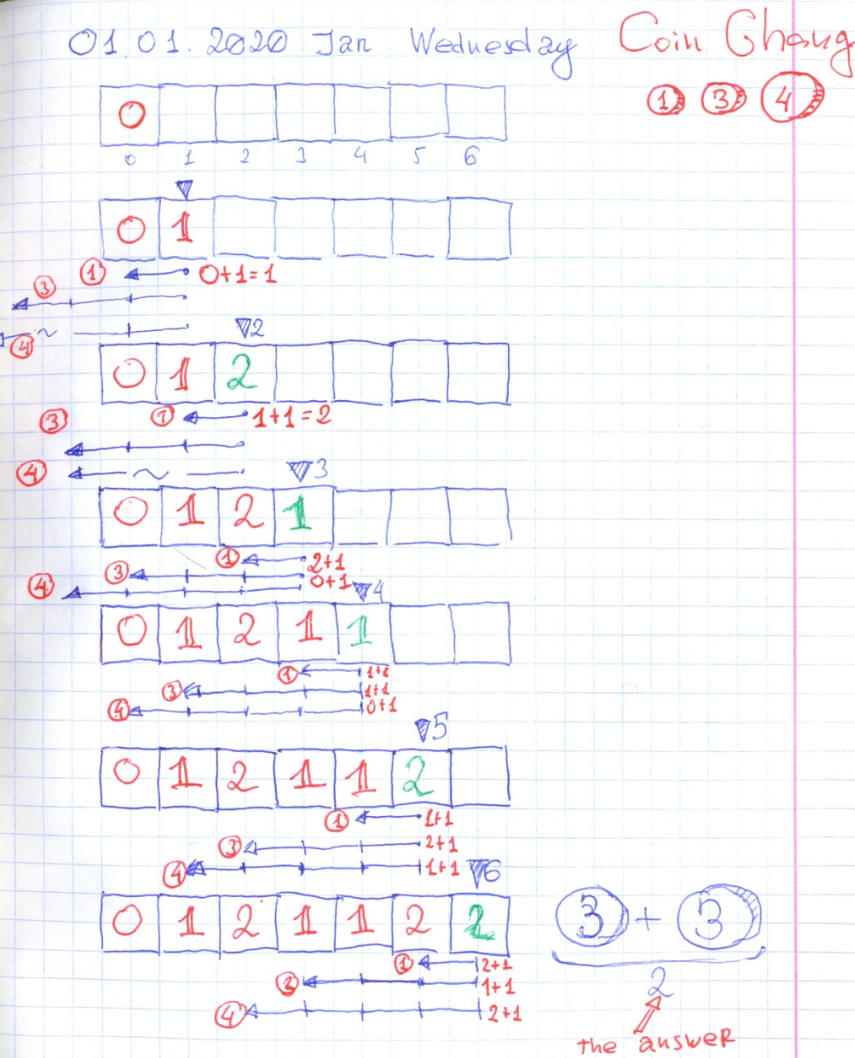 01.01.2020 Jan Wednesday Coin Chang
1 3 4
0
0 1 2 3 4 5 6
0 1
1 0+1=1
3
4
2
0 1 2
1 1+1=2
3
4
3
0 1 2 1
1 2+1
3 0+1
4
4
0 1 2 1 1
1 1+1
3 1+1
4 0+1
5
0 1 2 1 1 2
1 1+1
3 2+1
4 1+1
6
0 1 2 1 1 2 2
3 + 3
1 2+1
3 1+1
2
4 2+1
the answer